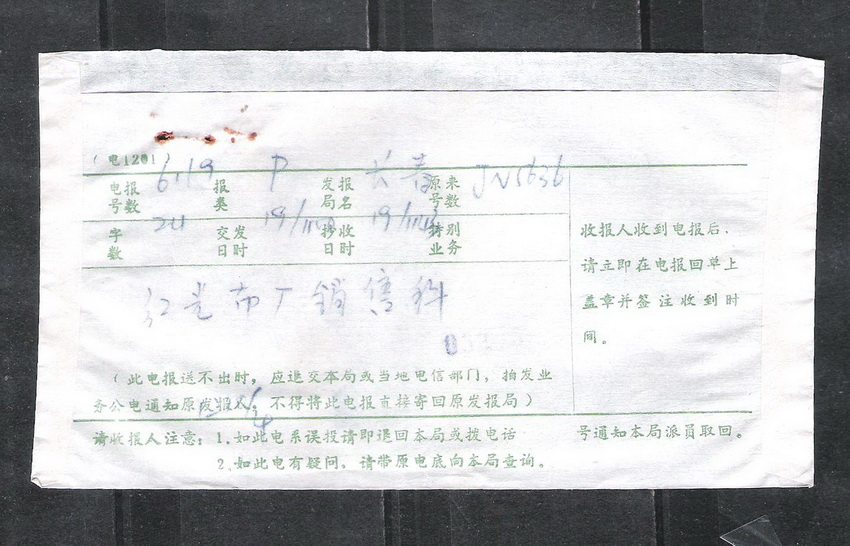 （电120）
电报号数 6119 报类 P 发报局名 长春 原来号数 JN5636
字数 24 交发日时 19/ 抄收日时 19/ 特别业务
收报人收到电报后，
请立即在电报回单上
盖章并签注收到时
间。
红光布厂销售科
（此电报送不出时，应退交本局或当地电信部门，拍发业
务公电通知原发报人，不得将此电报直接寄回原发报局）
请收报人注意：1.如此电系误投请即退回本局或拨电话 号通知本局派员取回。
2.如此电有疑问，请带原电底向本局查询。